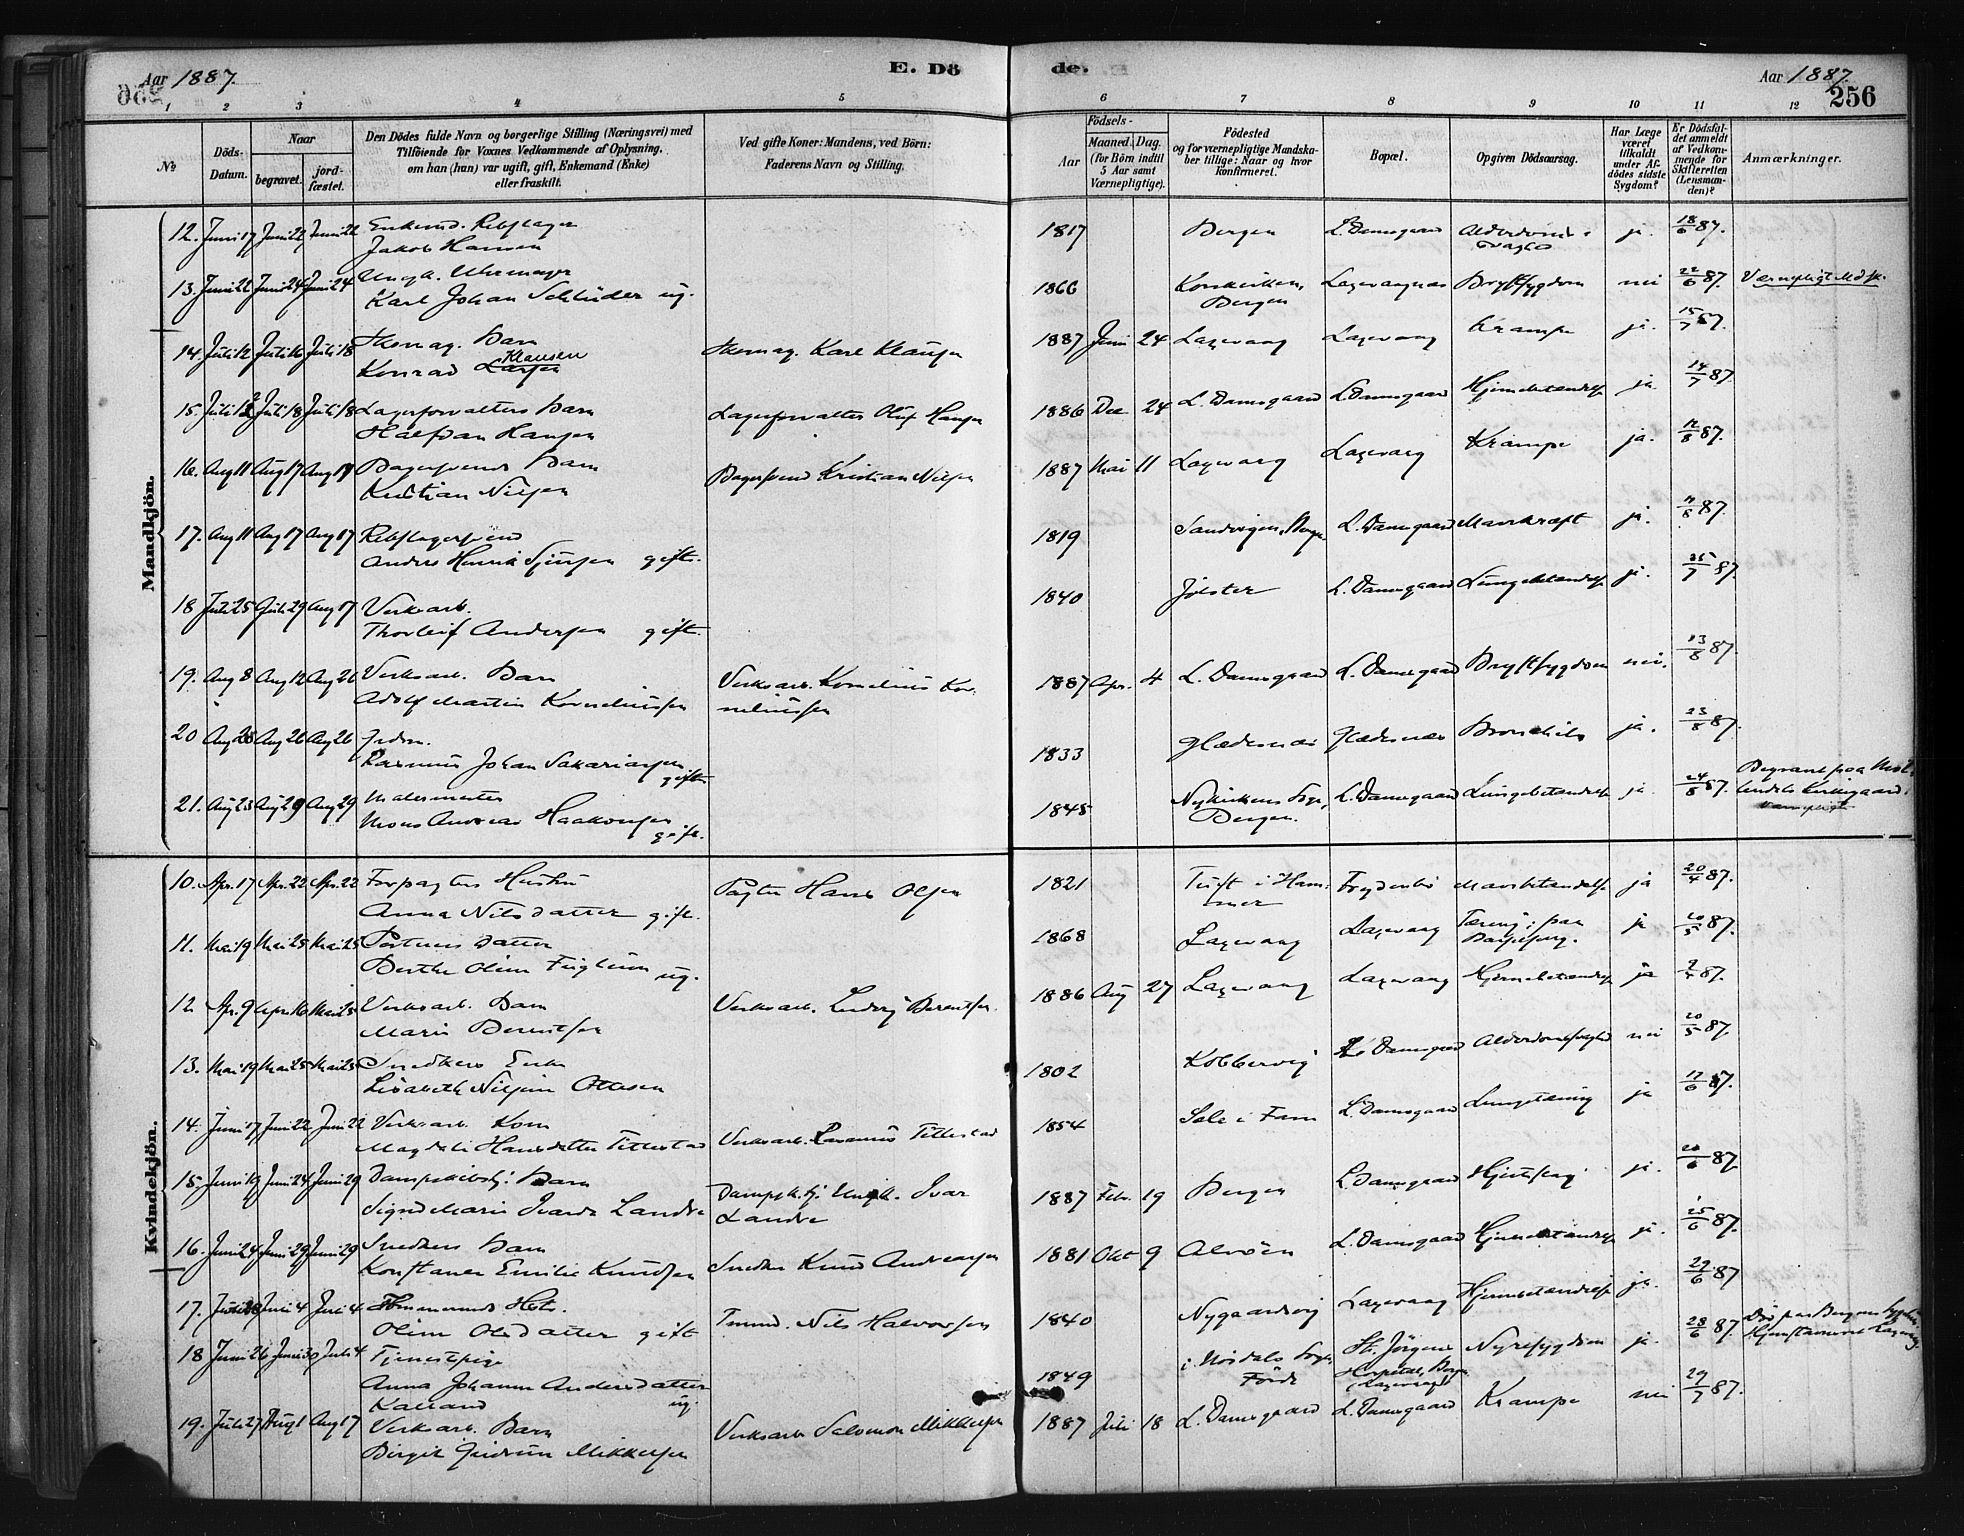 Aar 1887.
E. Dö
de.
Aar 1887.
256
1 2 3 4 5 6 7 8 9 10 11 12
№
Döds-
Datum.
Naar
begravet.
jord-
fæstet.
Den Dödes fulde Navn og borgerlige Stilling (Næringsvei) med
Tilföiende for Voxnes Vedkommende af Oplysning,
om han (hun) var ugift, gift, Enkemand (Enke)
eller fraskilt.
Ved gifte Koner: Mandens, ved Börn:
Faderens Navn og Stilling.
Födsels-
Aar
Maaned. Dag.
(for Börn indtil
5 Aar samt
Værnepligtige).
Födested
og for værnepligtige Mandska-
ber tillige: Naar og hvor
konfirmeret.
Bopæl.
Opgiven Dödsaarsag.
Har Læge
været
tilkaldt
under Af-
dödes sidste
Sygdom?
Er Dödsfal-
det anmeldt
af Vedkom-
mende for
Skifteretten
(Lensman-
den)?
Anmærkninger.
Mandkjön.
12. Juni 17 Juni 22 Juni 22 Enkemd. Rebslager
Jakob Hansen
1817 Bergen L. Damsgaard ja. 18/6 87.
13. Juni 22 Juni 24 Juni 24 Ungk. Uhrmager
Karl Johan Schlüder ug.
1866 Korskirken, Bergen Laxevaagnæs Brystsygdom nei 22/6 87. Værnepligt. Mdsk.
14. Juli 12 Juli 16 Juli 18 Skomag. Barn
Konrad Larsen Klausen
Skomag. Karl Klausen
1887 Juni 24 Laxevaag Laxevaag Krampe ja. 15/7 87.
15. Juli 12 Juli 18 Juli 18 Lagerforvalters Barn
Halfdan Hansen
Lagerforvalter Oluf Hansen
1886 Dec 24 L. Damsgaard L. Damsgaard Hjernebetændelse ja. 14/7 87.
16. Aug 11 Aug 17 Aug 17 Bagersvends Barn
Kristian Nilsen
Bagersvend Kristian Nilsen
1887 Mai 11 Laxevaag Laxevaag Krampe ja. 12/8 87.
17. Aug 11 Aug 17 Aug 17 Rebslagersvend
Anders Henrik Sjursen gift.
1819 Sandvigen, Bergen L. Damsgaard Mavekræft ja. 11/8 87.
18 Juli 25 Juli 29 Aug 17 Verksarb.
Thorleif Andersen gift.
1840 Jölster L. Damsgaard Lungebetændelse ja. 25/7 87.
19. Aug 8 Aug 12 Aug 26 Verksarb. Barn
Adolf Martin Korneliussen
Verksarb. Kornelius Kor-
neliussen
1887 Apr. 4 L. Damsgaard L. Damsgaard Brystsygdom nei. 13/8 87.
20 Aug 23 Aug 26 Aug 26
Rasmus Johan Sakariasen gift
1833 Gladesnæs Gladesnæs Bronchitis ja. 23/8 87.
21. Aug 23 Aug 29 Aug 29 Malermester
Mons Andreas Haakonsen gift.
1845 Nykirkens Sogn, Bergen. L. Damsgaard Lungebetændelse ja. 24/8 87. Begravet paa
Kirkegaard.
Kvindekjön.
10. Apr. 17 Apr. 22 Apr. 22 Forpagters Hustru
Anna Nilsdatter gift.
Pagter Hans Olsen
1821 Tuft i Ham-
mer Frydenbö Mavebetændelse ja 20/4 87.
11. Mai 19 Mai 25 Mai 25 Portners Datter
Berthe Oline Fuglum ug.
1868 Laxevaag Laxevaag Tæring ja 20/5 87.
12 Apr. 9 Apr. 16 Mai 25 Verksarb. Barn
Marie Berentsen
Verksarb. Ludvig Berentsen.
1886 Aug 27 Laxevaag Laxevaag Hjernebetændelse ja 87.
13. Mai 19 Mai 25 Mai 25 Snedkers Enke
Lisabeth Nilsine Ottesen
1802 Kobbervig L. Damsgaard Alderdomssvaghed nei 20/5 87.
14. Juni 17 Juni 22 Juni 22 Verksarb. Kone
Magdeli Hansdatter Titlestad
Verksarb. Rasmus Titlestad
1854 Sele i Fane L. Damsgaard Lungetæring ja 17/6 87.
15. Juni 19 Juni 24 Juni 29 Dampskibskj. Barn
Signe Marie Ivarda Landre
Dampsk.kj. Ungk. Ivar
Landre
1887 Febr. 19 Bergen L. Damsgaard ja. 20/6 87
16. Juni 24 Juni 29 Juni 29 Snedkers Barn
Konstance Emilie Knudsen
Snedker Knud Andreasen
1881 Okt 9 Alvöen L. Damsgaard Hjernebetændelse ja. 25/6 87.
17. Juni 28 Juli 4 Juli 4 Tömmermands Hstr.
Oline Olsdatter gift
Tmmd. Nils Halvorsen
1840 Nygaardsvig Laxevaag Hjernebetændelse ja. 29/6 87
18 Juni 26 Juni 30 Juli 4 Tjenestpige
Anna Johanne Andersdatter
Kalland ug.
1849 Förde St. Jörgens
Hospital, Bergen
(Laxevaag) Nyresygdom ja. 28/6 87. Död paa Bergens Sygehus
19. Juli 27 Aug 1 Aug 17 Verksarb. Barn
Birgit Gudrun Mikkelsen
Verksarb Salomon Mikkelsen
1887 Juli 18 L. Damsgaard L. Damsgaard Krampe nei 29/7 87.